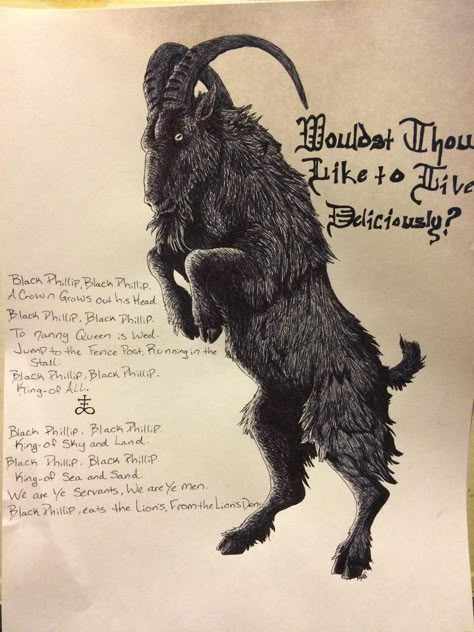 Wouldst Thou
Like to Live
Deliciously?
Black Phillip, Black Phillip.
A Crown Grows out his Head.
Black Phillip, Black Phillip.
To nanny Queen is Wed.
Jump to the Fence Post, Running in the
Stall.
Black Phillip, Black Phillip.
King-of All.
Black Phillip, Black Phillip.
King-of Sky and Land.
Black Phillip, Black Phillip.
King-of Sea and Sand.
We are Ye Servants, We are Ye Men.
Black Phillip, eats the Lion's, From the Lion's Den.